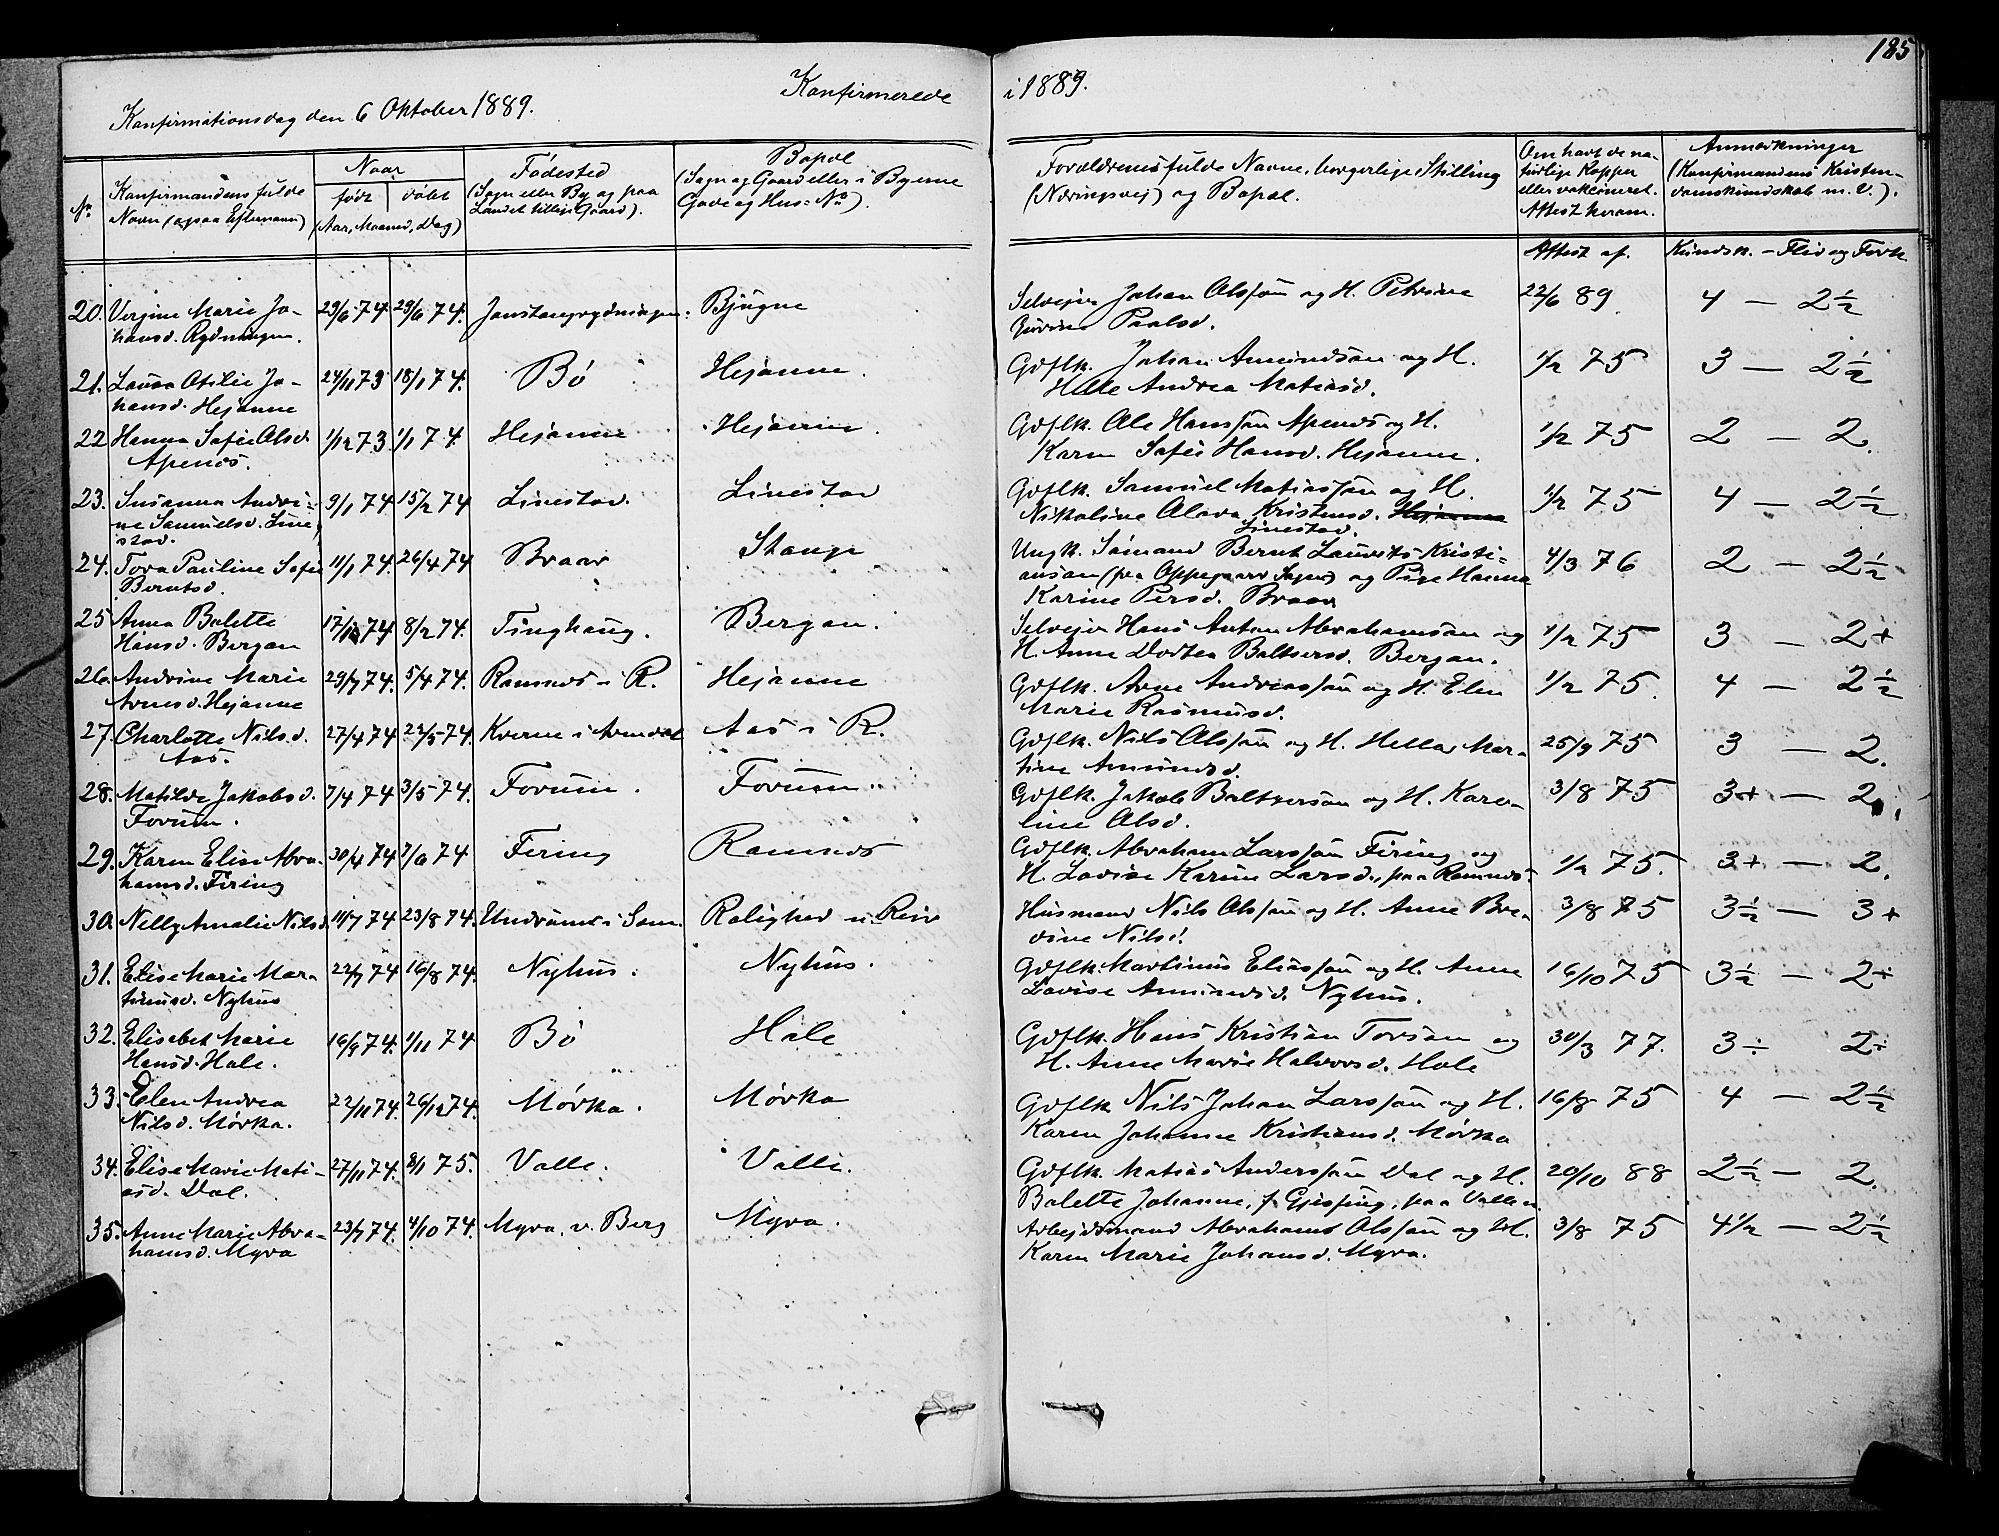 185
Konfirmerede i 1889.
Konfirmationsdag den 6 Oktober 1889.
No
Konfirmandens fulde
Navn (ogsaa Efternavn)
Naar
født døbt
(Aar, Maaned, Dag)
Fødested
(Sogn eller By og paa
Landet tillige Gaard).
Bopæl
(Sogn og Gaard eller i Byerne
Gade og Hus=No).
Forældrenes fulde Navne, borgerlige Stilling
(Næringsvej) og Bopæl.
Om havt de na-
turlige Kopper
eller vakcineret.
Attest herom.
Anmerkninger
(Konfirmandens Kristen-
domskundskab m. V.).
Attest af. Kundsk. – Flid og Forh.
20. Verjine Marie Jo- 29/6 74. 29/6 74. Bjugne Selvejer Johan Olsson og H. Petrine 22/6 89. 4 — 2½
hansd. Rydningen. Paalsd.
21. Laura Otilie Jo- 24/11 73 18/1 74. Bö Hejanne. Gdflk. Johan Amundsøn og H. 1/2 75 3 — 2½
hansd. Hejanne Helle Andrea Matiasd.
22 Hanna Sofie Olsd. 1/12 73 1/1 74. Hejanne Hejanne. Gdflk. Ole Hanssøn Apenæs og H. 1/2 75 2 — 2.
Apenæs. Karen Sofie Hansd. Hejanne.
23. Susanna Andri- 9/1 74 15/2 74 Linestad. Linestad Gdflk. Samuel Matiassøn og H. 1/2 75 4 — 2½
ne Samuelsd. Line- Nikoline Olava Kristensd. Hejanne
stad. Linestad.
24. Tora Pauline Sofie 11/1 74. 26/4 74 Braar Stange Ungk. Sømand Bernt Lauritz Kristi- 4/3 76 2 — 2½
Berntsd. ansøn (fra Oppegaard Sogn) og Pige Hanna
Karine Persd. Braar
25 Anna Balette 17/1 74 8/2 74. Tinghaug. Bergan. Selvejer Hans Anton Abrahamsøn og 1/2 75 3 — 2+
Hansd. Bergan H. Anne Dortea Baltsersd. Bergan.
26. Andrine Marie 5/4 74. Ramnes i R. Hejanne Gdflk. Arne Andreassøn og H. Elen 1/2 75. 4 — 2½
Arnesd. Hejanne Marie Rasmusd.
27. Charlotte Nilsd. 27/4 74 24/5 74. Kverne i Arendal Aas i R. Gdflk. Nils Olssøn og H. Hella Mar- 25/9 75 3 — 2.
Aas. tine Amundsd.
28. Matilde Jakobsd. 7/4 74 3/5 74. Forum. Forum. Gdflk. Jakob Baltsersøn og H. Karo- 3/8 75 3+ — 2.
Forum. line Olsd.
29. Karen Elise Abra- 30/4 74 7/6 74 Firing Ramnes Gdflk. Abraham Larssøn Firing og 1/2 75. 3+ — 2.
hamsd. Firing H. Lovise Karine Larsd., paa Ramnes.
30. Nelly Amalie Nilsd. 11/7 74 23/8 74. Undrums i Sem. Rolighed u. Reir Husmand Nils Olssøn og H. Anne Bre- 3/8 75 3½ — 3+
dine Nilsd.
31. Elise Marie Mar- 22/7 74 16/8 74. Nyhus. Nyhus. Gdflk. Martinus Eliassøn og H. Anne 16/10 75 3½ — 2+
tinusd. Nyhus Lovise Amundsd. Nyhus.
32. Elisebet Marie 16/9 74. 1/11 74 Bö Hole Gdflk. Hans Kristian Torsøn og 30/3 77. 3÷ 2÷
Hansd. Hole. H. Anne Marie Halvorsd. Hole
33. Elen Andrea 22/11 74. 26/12 74. Mørka. Mørka Gdflk. Nils Johan Larssøn og H. 16/8 75 4 — 2½
Nilsd. Mørka. Karen Johanne Kristiansd. Mørka
34. Elise Marie Mati- 27/11 74. 8/1 75. Valle. Valle. Gdflk. Matias Anderssøn Dal og H. 20/10 88 2½ — 2.
asd. Dal. Balette Johanne, f. Gjesping, paa Valle
35. Anne Marie Abra- 23/7 74. 4/10 74. Myra. v. Berg Myra. Arbejdsmand Abrahams Olssøn og H. 3/8 75 4½ — 2½
hamsd. Myra Karen Marie Johansd. Myra.